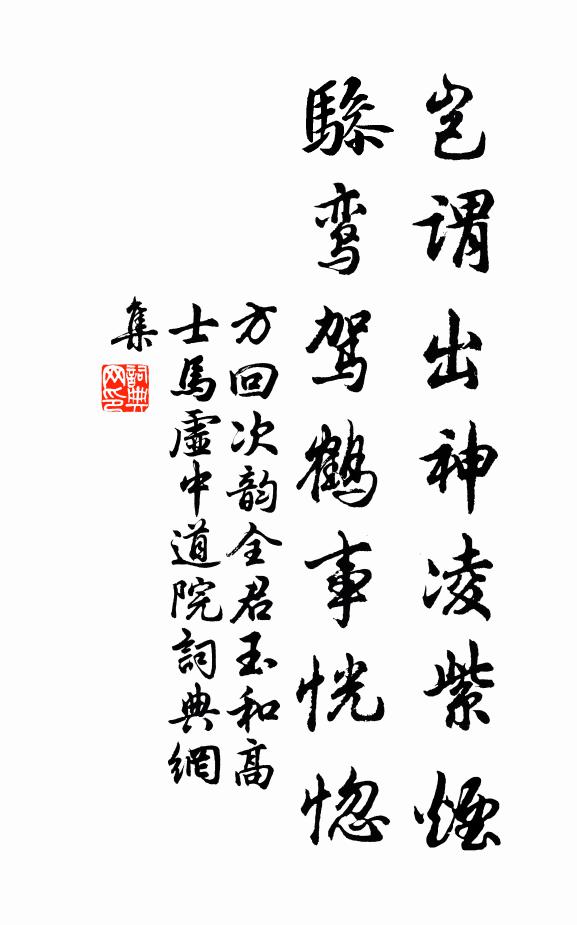 岂谓出神凌紫煙
驂鸾驾鹤事恍惚
方回次韵全君玉和高
士馬虛中道院詞典網
集
詞典网印